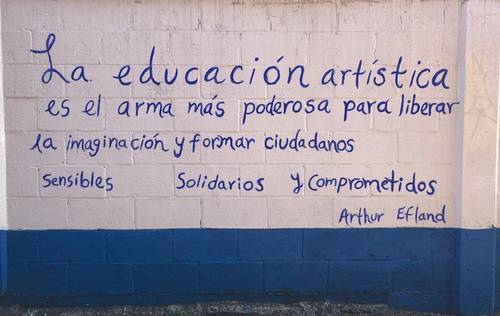 La educación artística
es el arma más poderosa para liberar
la imaginación y formar ciudadanos
Sensibles Solidarios y Comprometidos
Arthur Efland